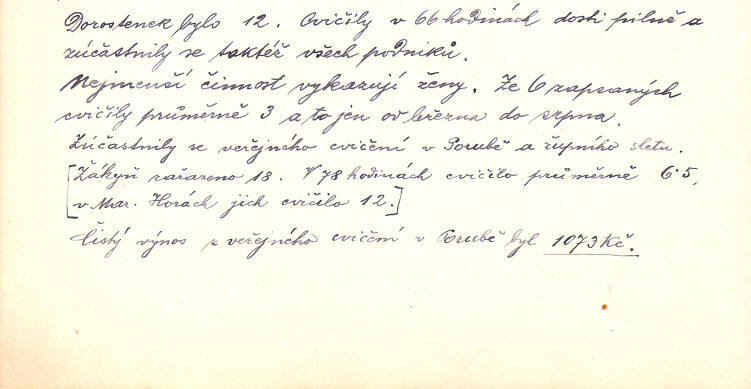 Dorostenek bylo 12. Cvičily v 66 hodinách dosti pilně a
zúčastnily se taktéž všech podniků.
Nejmenší činnost vykazují ženy. Ze 6 zapsaných
cvičily průměrně 3 a to jen od března do srpna.
Zúčastnily se veřejného cvičení v Porubě a župního sletu.
[Žákyň zařazeno 18. V 78 hodinách cvičilo průměrně 6·5,
v Mar. Horách jich cvičilo 12.]
Čistý výnos z veřejného cvičení v Porubě byl 1073 Kč.